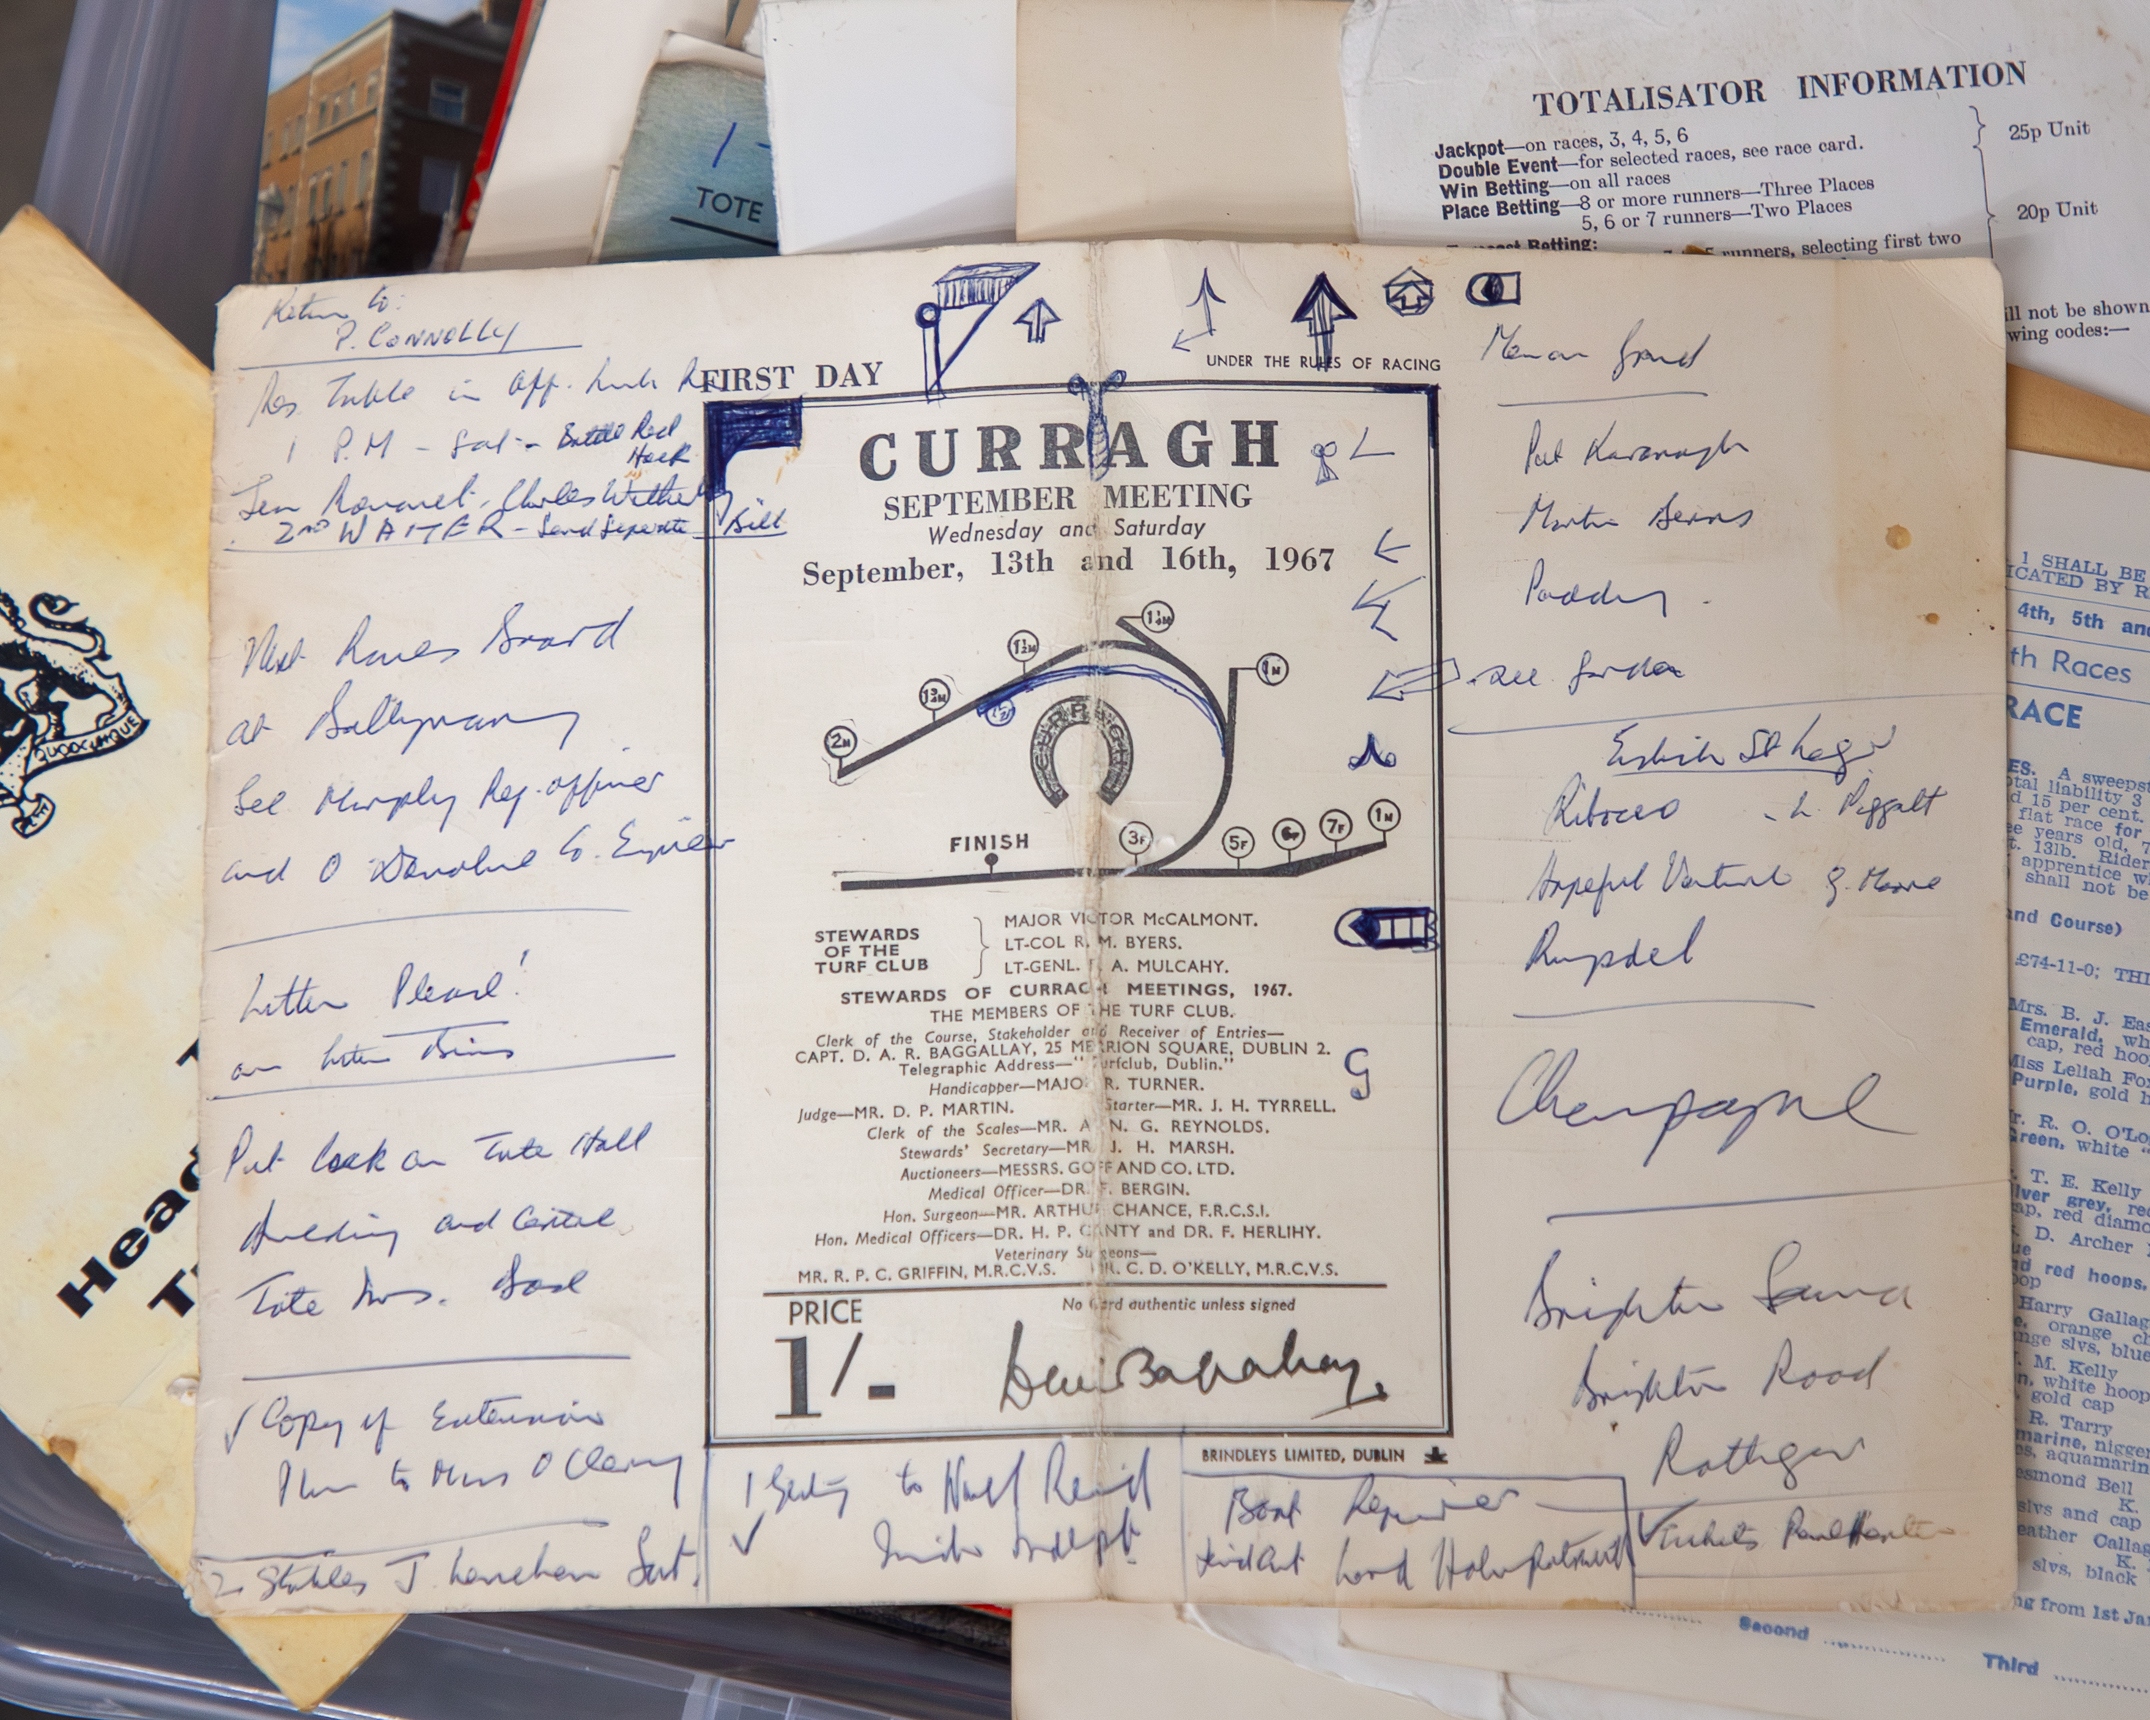 TOTALISATOR INFORMATION
Jackpot—on races, 3, 4, 5, 6
25p Unit
Double Event—for selected races, see race card.
Win Betting—on all races
Place Betting—8 or more runners—Three Places
5, 6 or 7 runners—Two Places
20p Unit
Betting:
runners, selecting first two
ill not be shown
wing codes:—
TOTE
Return to:
P. CONNOLLY
Res Table in Off. Lunch
1 P.M - Sat -
2ND WAITER - Send Separate Bill
Next Races Board
at Ballymany
See Murphy Reg. officer
and O Donohue Co. Engineer
Litter Please!
on Litter Bins
Put Lock on Tote Hall
Building and Central
Tote
✓ Copy of Extension
Plan to Miss O Cleary
2 Stables J. Lenehan Sat.
FIRST DAY
UNDER THE RULES OF RACING
CURRAGH
SEPTEMBER MEETING
Wednesday and Saturday
September, 13th and 16th, 1967
1¼M
1½M
1M
1¾M
2M
CURRAGH
FINISH
3F
5F
6F
7F
1M
STEWARDS OF THE TURF CLUB
MAJOR VICTOR McCALMONT.
LT-COL R. M. BYERS.
LT-GENL. A. MULCAHY.
STEWARDS OF CURRAGH MEETINGS, 1967.
THE MEMBERS OF THE TURF CLUB.
Clerk of the Course, Stakeholder and Receiver of Entries—
CAPT. D. A. R. BAGGALLAY, 25 MERRION SQUARE, DUBLIN 2.
Telegraphic Address—"Turfclub, Dublin."
Handicapper—MAJOR R. TURNER.
Judge—MR. D. P. MARTIN. Starter—MR. J. H. TYRRELL.
Clerk of the Scales—MR. A. N. G. REYNOLDS.
Stewards' Secretary—MR. J. H. MARSH.
Auctioneers—MESSRS. GOFF AND CO. LTD.
Medical Officer—DR. F. BERGIN.
Hon. Surgeon—MR. ARTHUR CHANCE, F.R.C.S.I.
Hon. Medical Officers—DR. H. P. CANTY and DR. F. HERLIHY.
Veterinary Surgeons—
MR. R. P. C. GRIFFIN, M.R.C.V.S. MR. C. D. O'KELLY, M.R.C.V.S.
PRICE
1/-
No Card authentic unless signed
BRINDLEYS LIMITED, DUBLIN
G
Pat Kavanagh
Martin Berns
Paddy
see Garden
English St Leger
Ribocco - L. Piggott
Hopeful Venture G. Moore
Champagne
Brighton
Brighton Road
Rathgar
✓ Tickets
Boat Repairer
find out Lord HolmPatrick
Second
Third
QUOCUNQUE
Head
1 SHALL BE
ICATED BY R
4th, 5th and
th Races
RACE
ES. A sweepst
otal liability 3
d 15 per cent.
flat race for
ee years old, 7
t. 13lb. Rider
apprentice w
shall not be
and Course)
£74-11-0; THI
Mrs. B. J. Eas
Emerald, wh
cap, red hoo
Miss Leliah Fox
Purple, gold h
r. R. O. O'Lo
Green, white
T. E. Kelly
lver grey, red
ap, red diamo
D. Archer
d red hoops,
Harry Gallag
orange ch
nge slvs, blue
M. Kelly
n, white hoop
gold cap
R. Tarry
esmond Bell
K.
slvs and cap
eather Gallag
K.
slvs, black
ng from 1st Ja